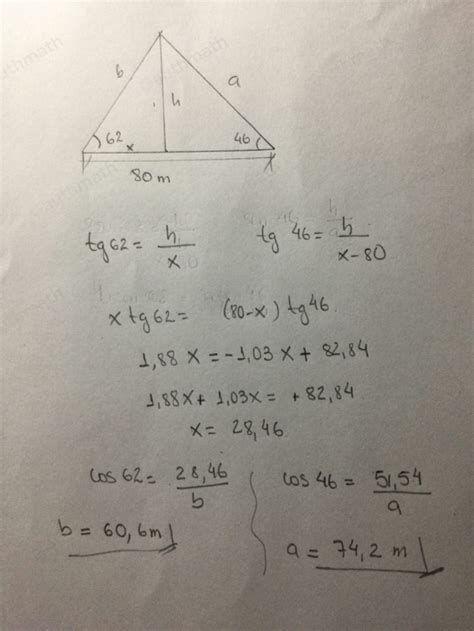 b
a
h
62
x
46
80 m
tg 62 = h/x    tg 46 = h/x-80
x tg 62 = (80-x) tg 46
1,88 x = -1,03 x + 82,84
1,88x + 1,03x = + 82,84
x = 28,46
cos 62 = 28,46/b    cos 46 = 51,54/a
b = 60,6m    a = 74,2 m